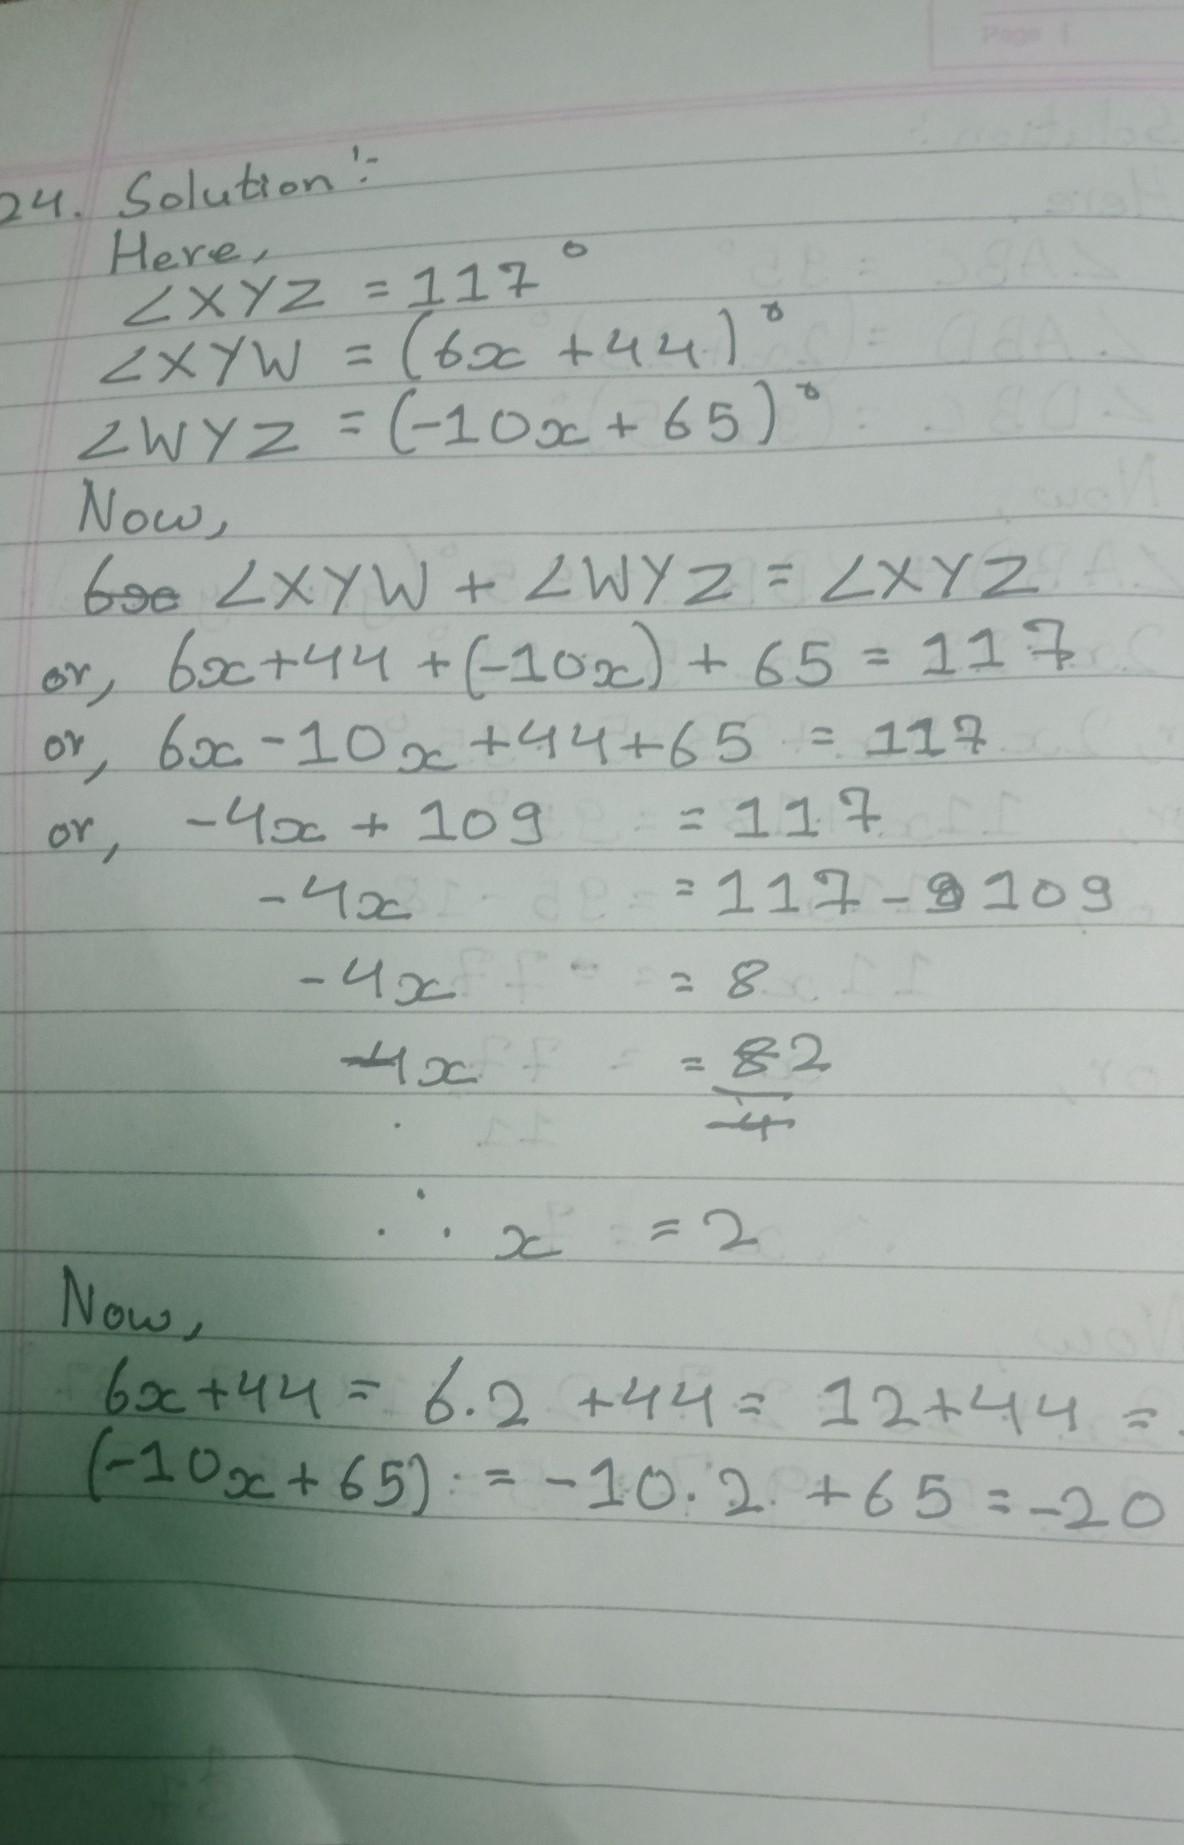 Page 1
24. Solution:-
Here,
∠XYZ = 117°
∠XYW = (6x + 44)°
∠WYZ = (-10x + 65)°
Now,
6x ∠XYW + ∠WYZ = ∠XYZ
or, 6x + 44 + (-10x) + 65 = 117
or, 6x - 10x + 44 + 65 = 117
or, -4x + 109 = 117
-4x = 117 - 109
-4x = 8
-4x = 8 2
-4
∴ x = 2
Now,
6x + 44 = 6.2 + 44 = 12 + 44 =
(-10x + 65) = -10.2 + 65 = -20